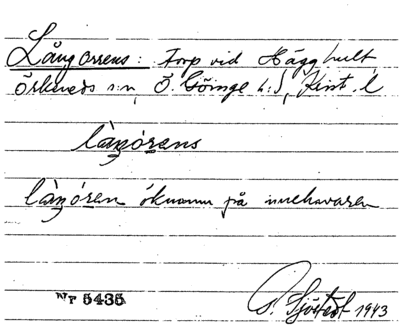 Långorrens: Torp vid Hägghult
Örkeneds s:n, Ö. Göinge h:d, Krist. l
làŋórens
làŋóren öknamn på innehavaren
Nr 5435
G. Sjöstedt 1943